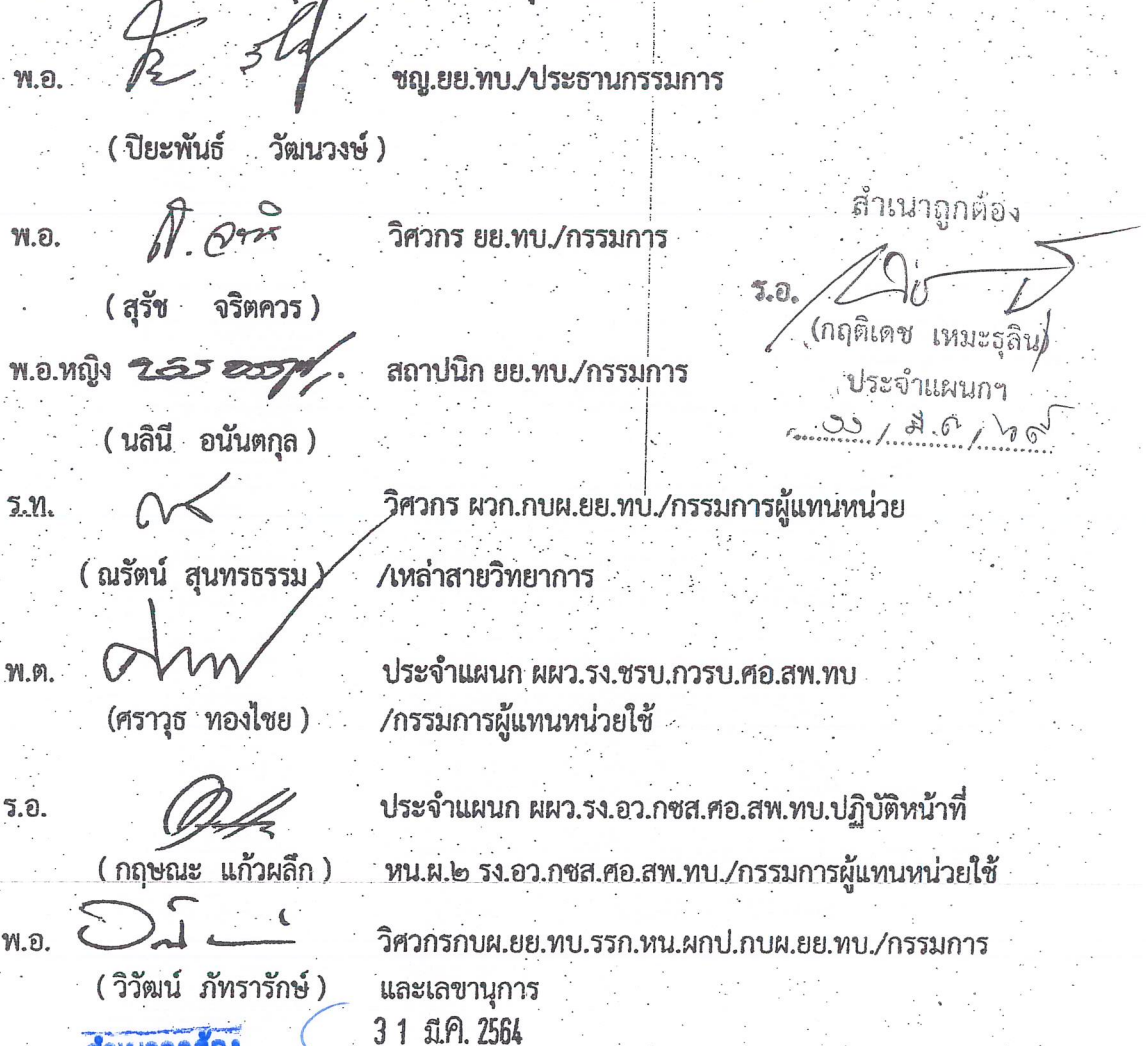 พ.อ. ชญ.ยย.ทบ./ประธานกรรมการ
( ปิยะพันธ์ วัฒนวงษ์ )
พ.อ. วิศวกร ยย.ทบ./กรรมการ
( สุรัช จริตควร )
พ.อ.หญิง สถาปนิก ยย.ทบ./กรรมการ
( นลินี อนันตกุล )
ร.ท. วิศวกร ผวก.กบผ.ยย.ทบ./กรรมการผู้แทนหน่วย
( ณรัตน์ สุนทรธรรม ) /เหล่าสายวิทยาการ
พ.ต. ประจำแผนก ผผว.รง.ซรบ.กวรบ.ศอ.สพ.ทบ
(ศราวุธ ทองไชย ) /กรรมการผู้แทนหน่วยใช้
ร.อ. ประจำแผนก ผผว.รง.อว.กซส.ศอ.สพ.ทบ.ปฏิบัติหน้าที่
( กฤษณะ แก้วผลึก ) หน.ผ.๒ รง.อว.กซส.ศอ.สพ.ทบ./กรรมการผู้แทนหน่วยใช้
พ.อ. วิศวกรกบผ.ยย.ทบ.รรก.หน.ผกป.กบผ.ยย.ทบ./กรรมการ
( วิวัฒน์ ภัทรารักษ์ ) และเลขานุการ
31 มี.ค. 2564
สำเนาถูกต้อง
ร.อ.
(กฤติเดช เหมะธุลิน)
ประจำแผนกฯ